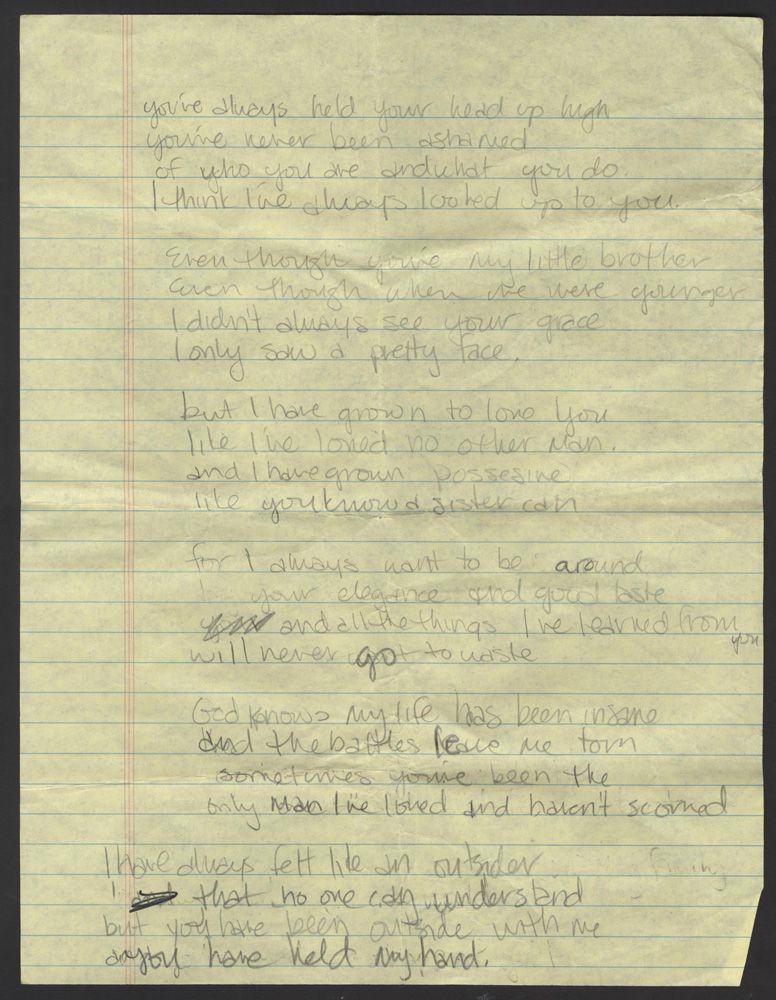 you've always held your head up high
you've never been ashamed
of who you are and what you do.
I think I've always looked up to you.
Even though you're my little brother
Even though when we were younger
I didn't always see your grace
I only saw a pretty face.
but I have grown to love you
like I've loved no other man.
and I have grown possesive
like you know a sister can
for I always want to be around
your elegance and good taste
and all the things I've learned from
you
will never go to waste
God knows my life has been insane
and the battles leave me torn
sometimes you've been the
only man I've loved and haven't scorned
I have always felt like an outsider
that no one can understand
but you have been outside with me
and you have held my hand.